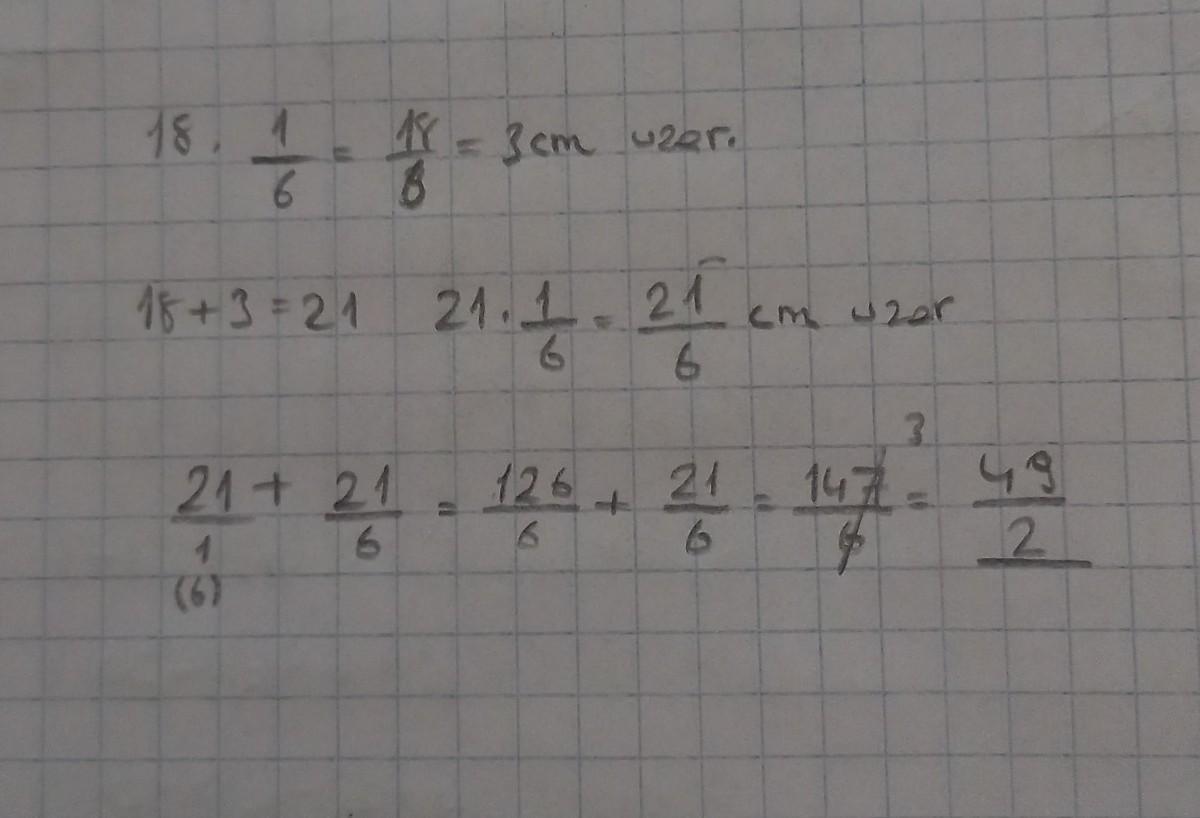 18 . 1/6 = 18/6 = 3 cm uzar.
18 + 3 = 21 21 . 1/6 = 21/6 cm uzar
21/1 + 21/6 = 126/6 + 21/6 = 147/6 3 = 49/2
(6)